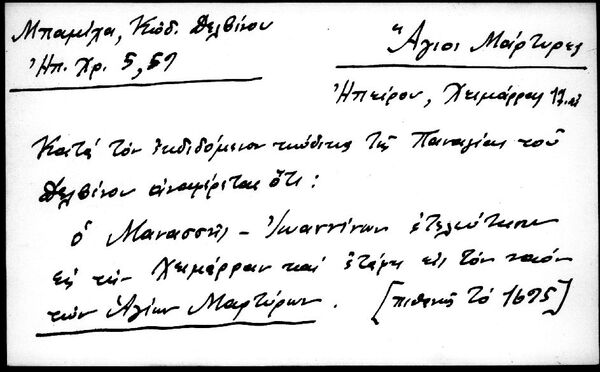 Μπαμίχα, Κώδ. Δελβίνου
Ἠπ. Χρ. 5, 57
Ἅγιοι Μάρτυρες
Ἠπείρου, Χειμάρρας
Κατά τόν ἐκδιδόμενον κώδικα τῆς Παναγίας τοῦ
Δελβίνου ἀναφέρεται ὅτι:
ὁ Μανασσῆς - Ἰωαννίνων ἐτελεύτησεν
εἰς τήν Χειμάρραν καί ἐτάφη εἰς τόν ναόν
τῶν Ἁγίων Μαρτύρων. [πιθανῶς τό 1695]